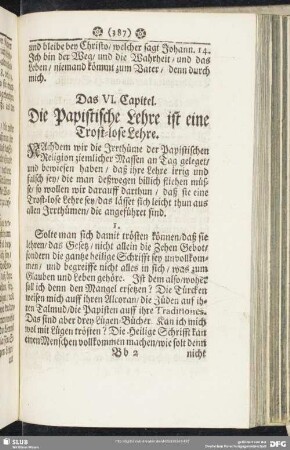 (387)
und bleibe bey Christo/ welcher sagt Johann. 14.
Ich bin der Weg/ und die Wahrheit/ und das
Leben/ niemand kömmt zum Vater/ denn durch
mich.
Das VI. Capitel.
Die Papistische Lehre ist eine
Trost-lose Lehre.
NAchdem wir die Irrthüme der Papistischen
Religion ziemlicher Massen an Tag geleget/
und bewiesen haben/ daß ihre Lehre irrig und
falsch sey/ die man deßwegen billich fliehen müß-
se/ so wollen wir darauff darthun/ daß sie eine
Trost-lose Lehre sey/ das lässet sich leicht thun aus
allen Irrthümen/ die angeführet sind.
1.
Solte man sich damit trösten können/ daß sie
lehren/ das Gesetz/ nicht allein die Zehen Gebot/
sondern die gantze heilige Schrifft sey unvollkom-
men/ und begreiffe nicht alles in sich/ was zum
Glauben und Leben gehöre. Ist dem also/ woher
soll ich denn den Mangel ersetzen? Die Türcken
weisen mich auff ihren Alcoran/ die Jüden auf ih-
ren Talmud/ die Papisten auff ihre Traditiones.
Das sind aber drey Lügen-Bücher. Kan ich mich
wol mit Lügen trösten? Die Heilige Schrifft kan
einen Menschen vollkommen machen/ wie solt denn
Bb 2 nicht
SLUB
DFG